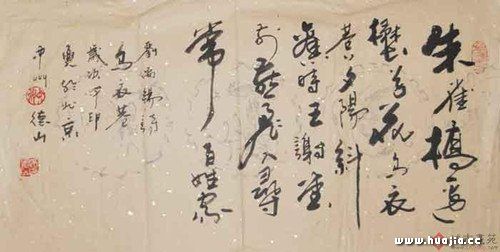 朱雀橋邊
野草花烏衣
巷口夕陽斜
舊時王謝堂
前燕飛入尋
常百姓家
劉禹錫詩
烏衣巷
歲次
於北京
中州
德山
www.huajia.cc